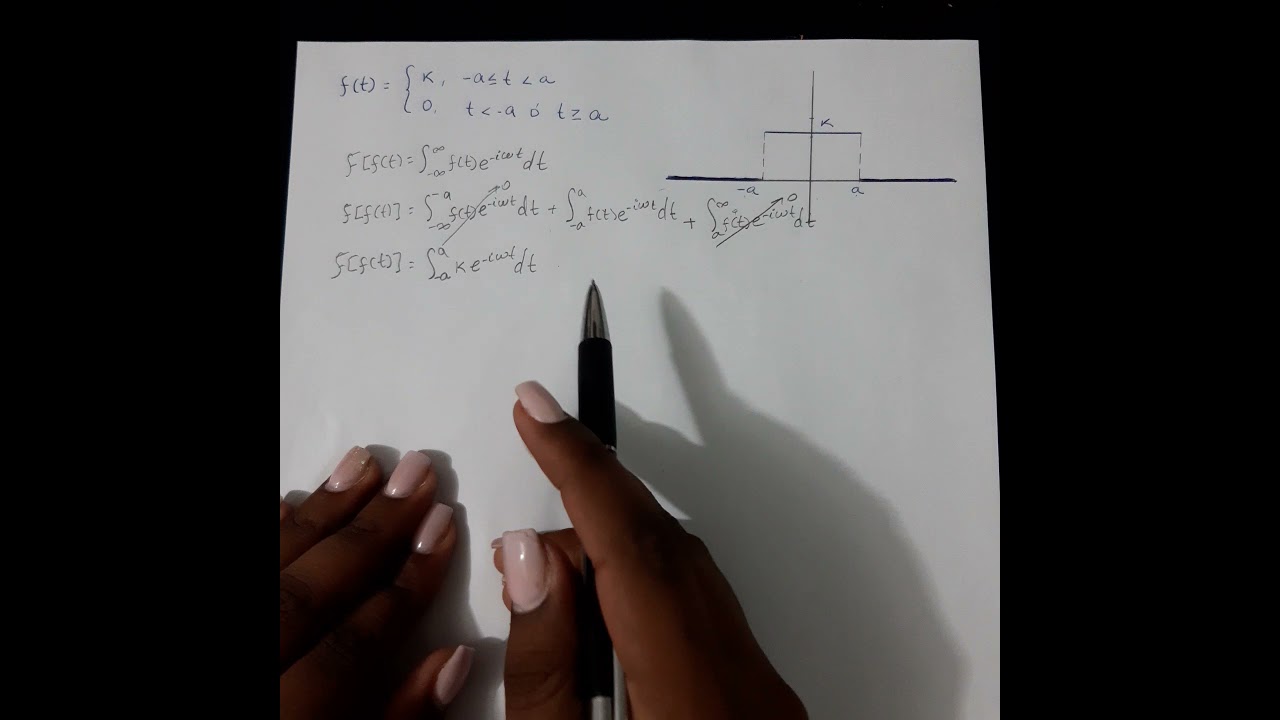 f(t) = { K, -a ≤ t < a
0, t < -a ó t ≥ a
K
-a a
F[f(t) = ∫_{-∞}^{∞} f(t)e^{-iωt}dt
F[f(t)] = ∫_{-∞}^{-a} f(t)e^{-iωt}dt + ∫_{-a}^{a} f(t)e^{-iωt}dt + ∫_{a}^{∞} f(t)e^{-iωt}dt
0 0
F[f(t)] = ∫_{-a}^{a} Ke^{-iωt}dt